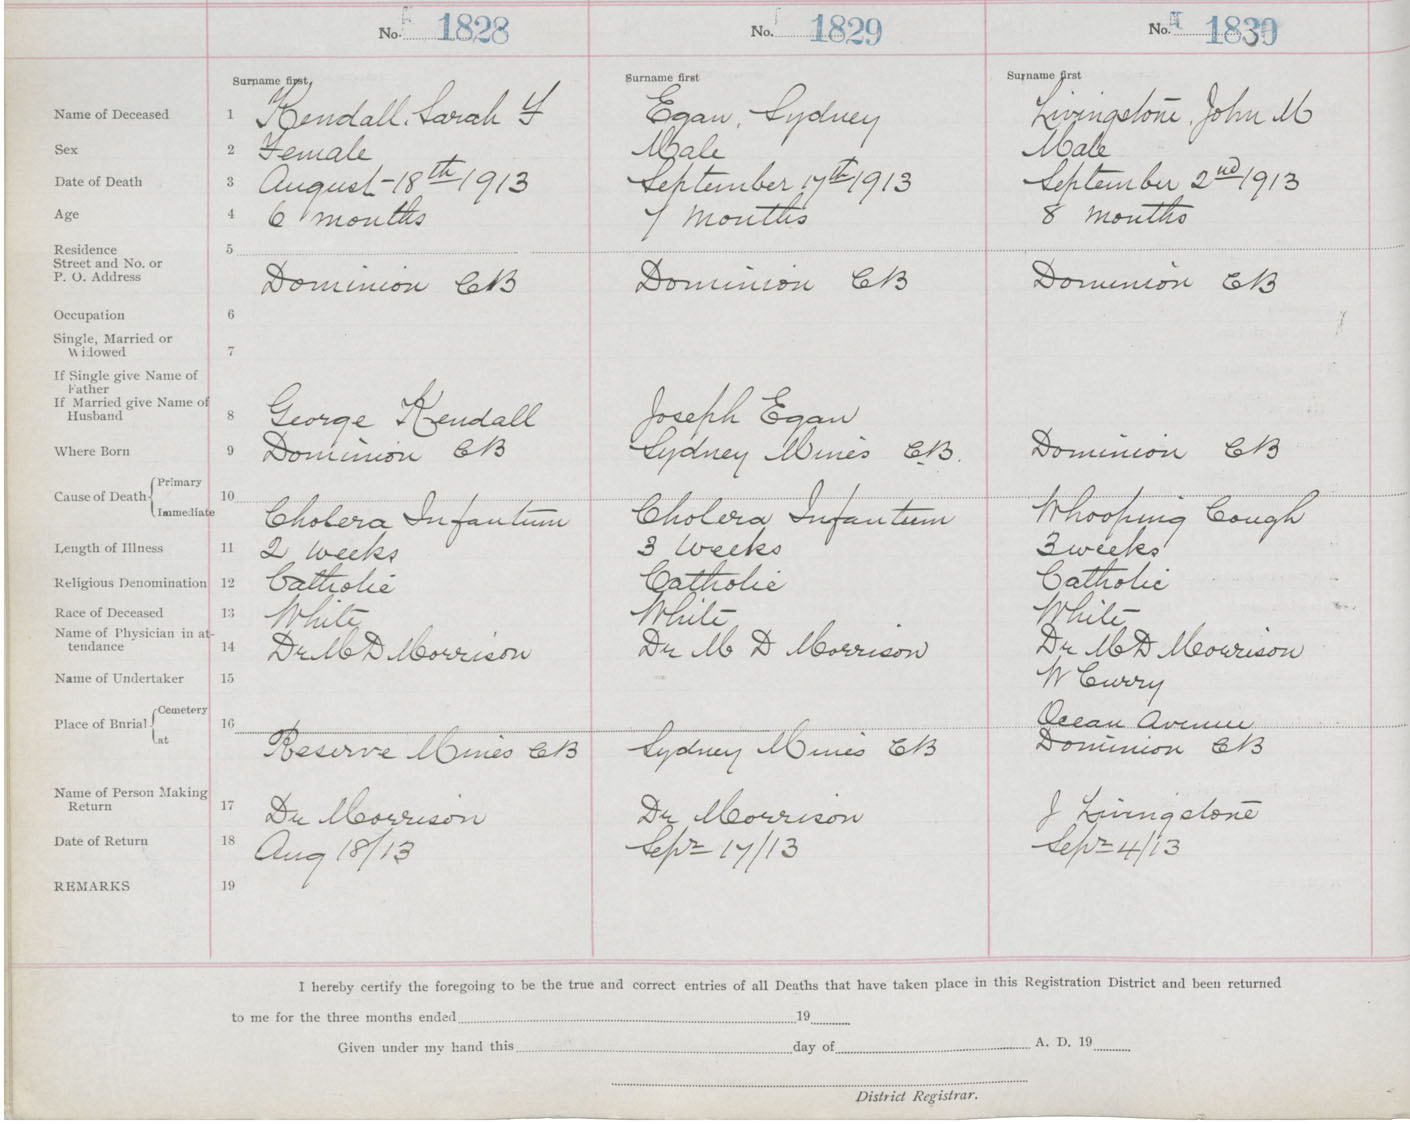 No. 1828 No. 1829 No. 1830
Surname first, Surname first Surname first
Name of Deceased 1 Kendall, Sarah F Egan, Sydney Livingstone, John M
Sex 2 Female Male Male
Date of Death 3 August 18th 1913 September 17th 1913 September 2nd 1913
Age 4 6 months 7 months 8 months
Residence 5
Street and No. or
P. O. Address Dominion CB Dominion CB Dominion CB
Occupation 6
Single, Married or
Widowed 7
If Single give Name of
Father
If Married give Name of
Husband 8 George Kendall Joseph Egan
Where Born 9 Dominion CB Sydney Mines C.B. Dominion CB
Cause of Death Primary 10
Immediate Cholera Infantum Cholera Infantum Whooping Cough
Length of Illness 11 2 weeks 3 weeks 3 weeks
Religious Denomination 12 Catholic Catholic Catholic
Race of Deceased 13 White White White
Name of Physician in at-
tendance 14 Dr M D Morrison Dr M D Morrison Dr M D Morrison
Name of Undertaker 15 W Curry
Place of Burial Cemetery 16 Ocean Avenue
at Reserve Mines CB Sydney Mines CB Dominion CB
Name of Person Making
Return 17 Dr Morrison Dr Morrison J Livingstone
Date of Return 18 Aug 18/13 Sepr 17/13 Sepr 4/13
REMARKS 19
I hereby certify the foregoing to be the true and correct entries of all Deaths that have taken place in this Registration District and been returned
to me for the three months ended 19
Given under my hand this day of A. D. 19
District Registrar.